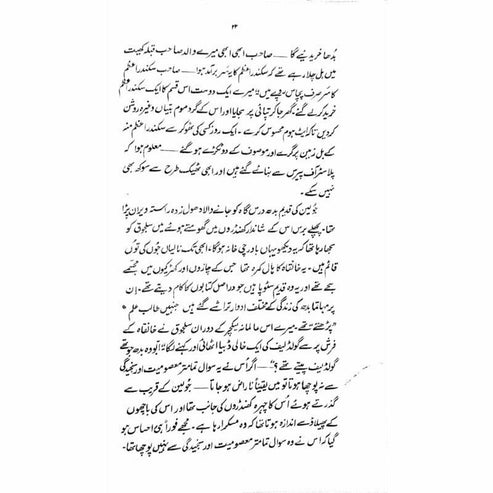 ۲۴
بُدھا خریدنیے گا ——— صاحب ابھی ابھی میرے والد صاحب قبلہ کھیت
میں ہل چلا رہے تھے کہ سکندرِ اعظم کا یہ سر برآمد ہوا ——— صاحب سکندرِ اعظم
کا سر صرف پچاس روپے میں؛ میرے ایک دوست اس قسم کا ایک سکندرِ اعظم
خرید کر لے گئے گھر جا کر تپائی پر سجایا اور اس کے گرد موم بتیاں وغیرہ روشن
کر دیں تاکہ ایٹ ہوم محسوس کرے۔ ایک روز کسی کی ٹھوکر سے سکندرِ اعظم منہ
کے بل زمین پر گرے اور موصوف کے دو ٹکڑے ہو گئے ——— معلوم ہوا کہ
پلاسٹر آف پیرس سے بنائے گئے ہیں اور ابھی ٹھیک طرح سے سوکھ بھی
نہیں سکے۔
جُولین کی قدیم بدھ درس گاہ کو جانے والا دھول زدہ راستہ ویران پڑا
تھا۔ پچھلے برس اس کے شاندار کھنڈروں میں گھومتے ہوئے میں سلجوق کو
سمجھا رہا تھا کہ یہ دیکھو یہاں باورچی خانہ ہوگا۔ ابھی تک نالیاں جُوں کی تُوں
قائم ہیں۔ یہ خانقاہ کا ہال کمرہ تھا جس کے چاروں اور کھڑکیوں میں مجسمے
سجے تھے اور یہ وہ قدیم سٹوپا ہیں جو دراصل کتابوں کا کام دیتے تھے۔ ان
پر مہاتما بدھ کی زندگی کے مختلف ادوار تراشے گئے ہیں جنہیں طالب علم
"پڑھتے" تھے۔ میرے اس عالمانہ لیکچر کے دوران سلجوق نے خانقاہ کے
فرش پر سے گولڈ لیف کی ایک خالی ڈبیا اٹھائی اور کہنے لگا "ابّو وہ بدھو تھے
گولڈ لیف پیتے تھے؟" ——— اگر اُس نے یہ سوال تمام تر معصومیت اور سنجیدگی
سے پوچھا ہوتا تو میں یقیناً ناراض ہو جاتا ——— جُولین کے قریب سے
گذرتے ہوئے اُس کا چہرہ کھنڈروں کی جانب تھا اور اس کی باچھوں
کے پھیلاؤ سے اندازہ ہوتا تھا کہ وہ مسکرا رہا ہے۔ مجھے فوراً ہی احساس ہو
گیا کہ اس نے وہ سوال تمام تر معصومیت اور سنجیدگی سے نہیں پوچھا تھا۔